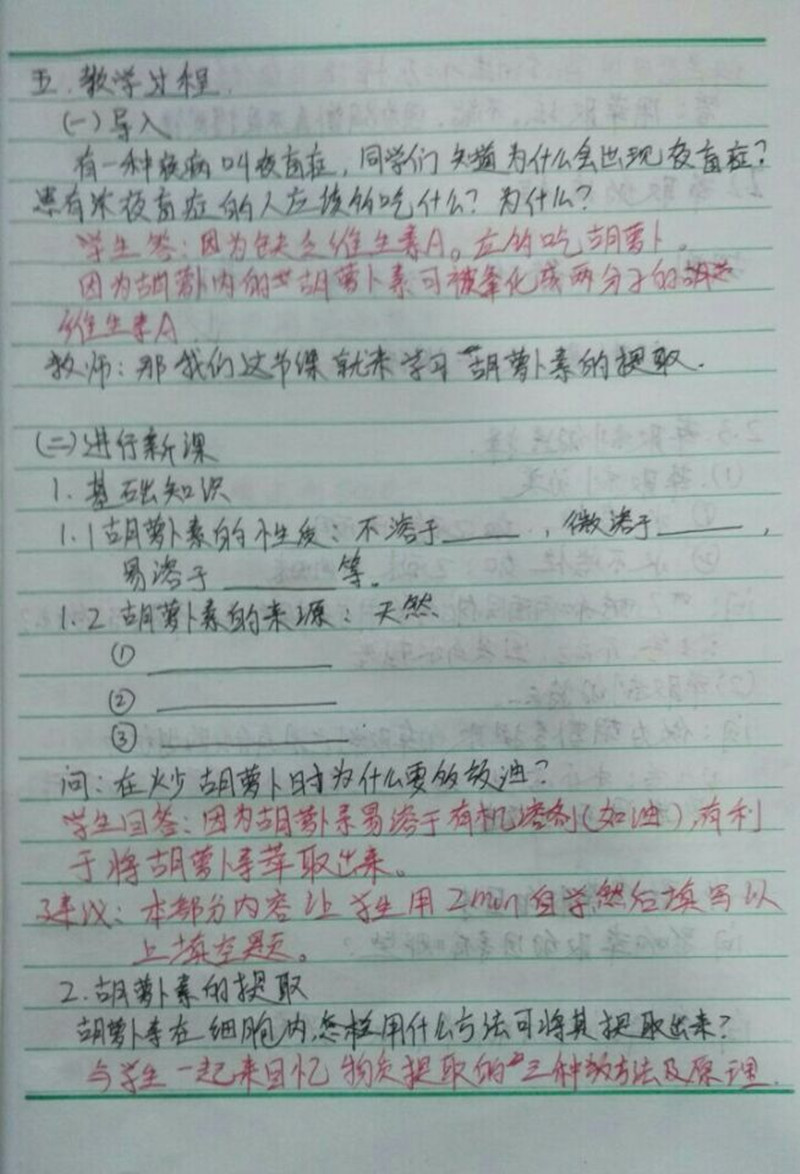 五.教学过程.
(一)导入
有一种疾病叫夜盲症,同学们知道为什么会出现夜盲症?
患有夜盲症的人应该多吃什么?为什么?
学生答:因为缺乏维生素A。应多吃胡萝卜。
因为胡萝卜内的胡萝卜素可被氧化成两分子的
维生素A
教师:那我们这节课就来学习胡萝卜素的提取.
(二)进行新课
1.基础知识
1.1胡萝卜素的性质:不溶于____,微溶于____,
易溶于____等。
1.2胡萝卜素的来源:天然
①____
②____
③____
问:在炒胡萝卜时为什么要多放油?
学生回答:因为胡萝卜素易溶于有机溶剂(如油),有利
于将胡萝卜素萃取出来。
建议:本部分内容让学生用2min自学然后填写以
上填空题。
2.胡萝卜素的提取
胡萝卜素在细胞内,怎样用什么方法可将其提取出来?
与学生一起来回忆物质提取的三种方法及原理.